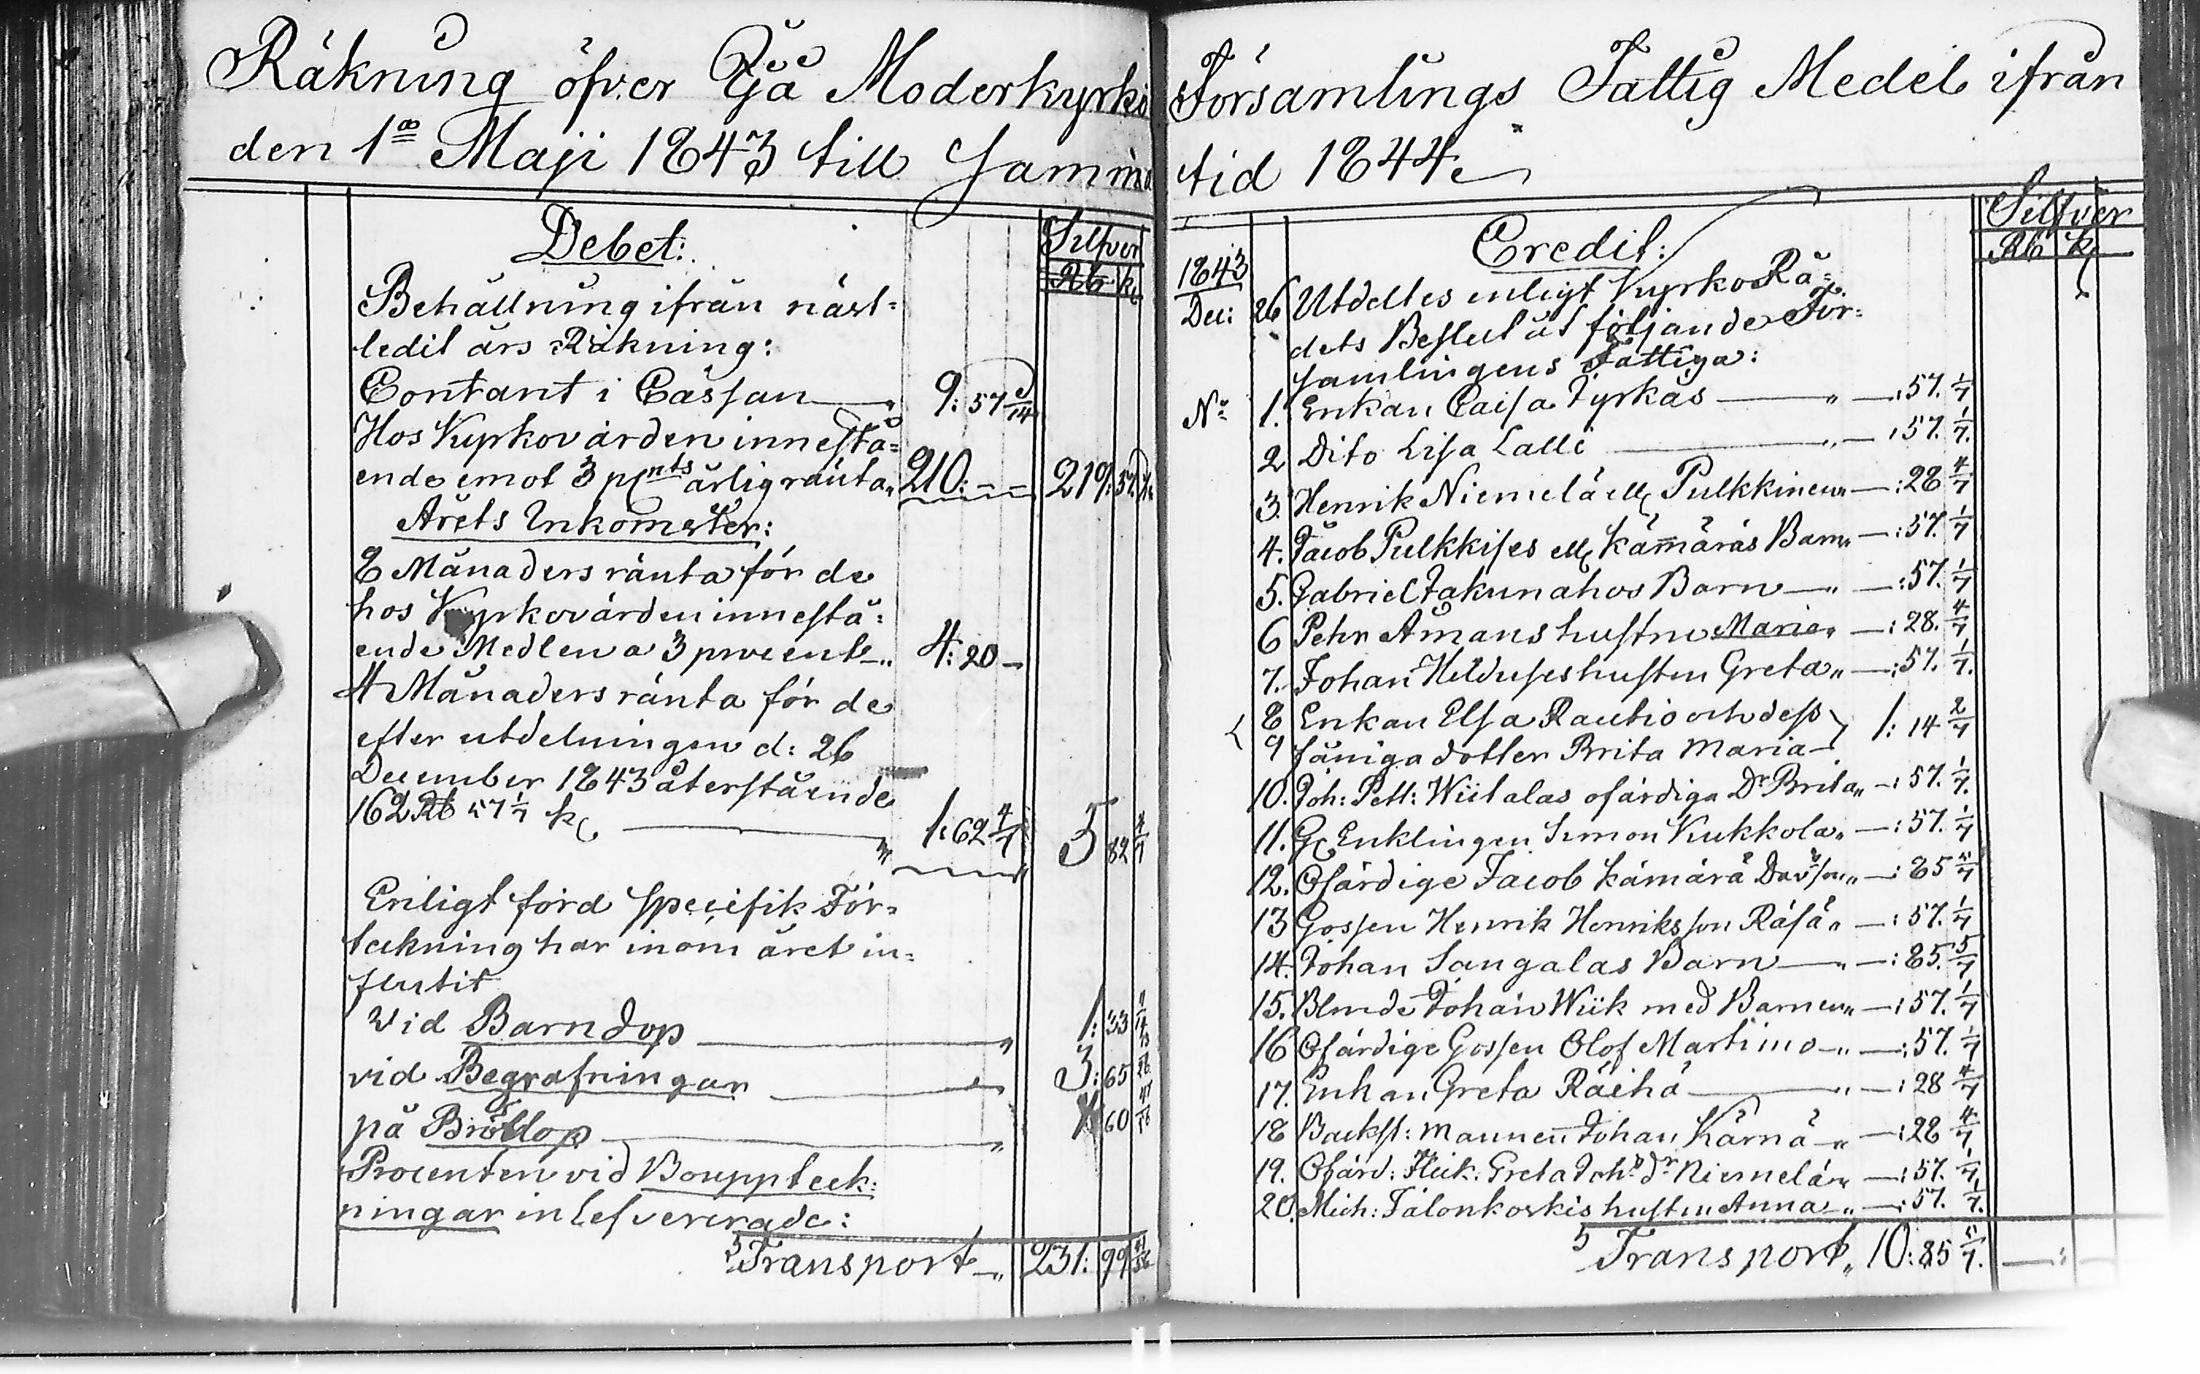 Räkning öfver Ijå Moderkyrko
den 1ᵃ Maji 1843 till samma
Debet:
Silfver
Rb k
Behållning ifrån näst-
ledit års Räkning:
Contant i Cassan 9: 57 9/14
Hos Kyrkovärden innestå-
ende emot 3 pCnts årlig ränta 210: - - 219: 57
Årets Inkomster:
8 Månaders ränta för de
hos Kyrkovärden innestå-
ende Medlen a 3 procent 4: 20 -
4 Månaders ränta för de
efter utdelningen d: 26
December 1843 återstående
162 Rb 57 1/7 k 1: 62 4/7 5 82 4/7
Enligt förd specifik För-
tekning har inom året in-
flutit
Vid Barndop 1: 33
vid Begrafningar 3: 65
på Bröllop 60
Procenten vid Bouppteck-
ningar inlefvererade:
Transport 231: 99
Församlings Fattig Medel ifrån
tid 1844
Credit:
Silfver
Rb k
1843
Dec: 26 Utdeltes enligt KyrkoRå-
dets Beslut åt följande För-
samlingens Fattiga:
No 1. Enkan Caisa Tyrkäs —: 57. 1/7
2 Dito Lisa Lalli — : 57. 1/7.
3. Henrik Niemelä ell Pulkkinen —: 28 4/7
4. Jacob Pulkkises ell Kämäräs Barn —: 57. 1/7
5. Gabriel Jakunahos Barn —: 57. 1/7
6 Pehr Åmans hustru Maria —: 28. 4/7
7. Johan Hilduses hustru Greta —: 57. 1/7.
8 Enkan Elsa Rautio och dess
9 fåniga dotter Brita Maria 1: 14 2/7
10. Joh: Pett: Wiitalas ofärdiga Dr Brita —: 57. 1/7.
11. G Enklingen Simon Kukkola —: 57. 1/7
12. Ofärdige Jacob Kämärä Davson —: 85 5/7
13 Gossen Henrik Henriksson Räsä —: 57. 1/7
14. Johan Sangalas Barn —: 85. 5/7
15. Blinde Johan Wiik med Barnen —: 57. 1/7
16 Ofärdige Gossen Olof Martimo —: 57. 1/7
17. Enkan Greta Räihä —: 28 4/7
18 Backst: mannen Johan Kärnä —: 28 4/7
19. Ofärd: Flick: Greta Joh: dr Niemelän —: 57. 1/7
20. Mich: Talonkoskis hustru Anna —: 57. 1/7.
Transport 10: 85 5/7.